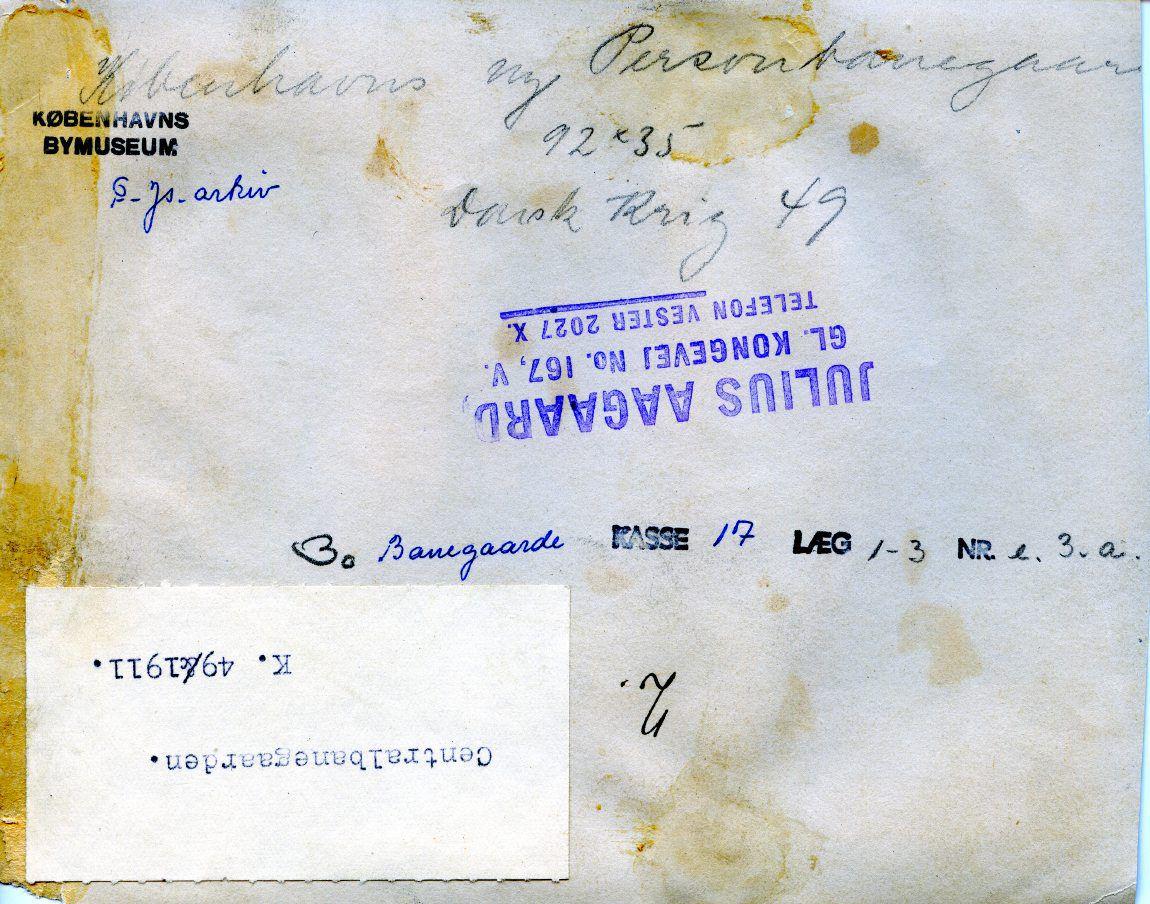 Københavns ny Personbanegaard
92×35
KØBENHAVNS
BYMUSEUM
arkiv
Dansk Krig 49
JULIUS AAGAARD,
GL. KONGEVEJ No. 167, V.
TELEFON VESTER 2027 X.
Banegaarde KASSE 17 LÆG 1-3 NR. e. 3. a.
Centralbanegaarden.
K. 49/1911.